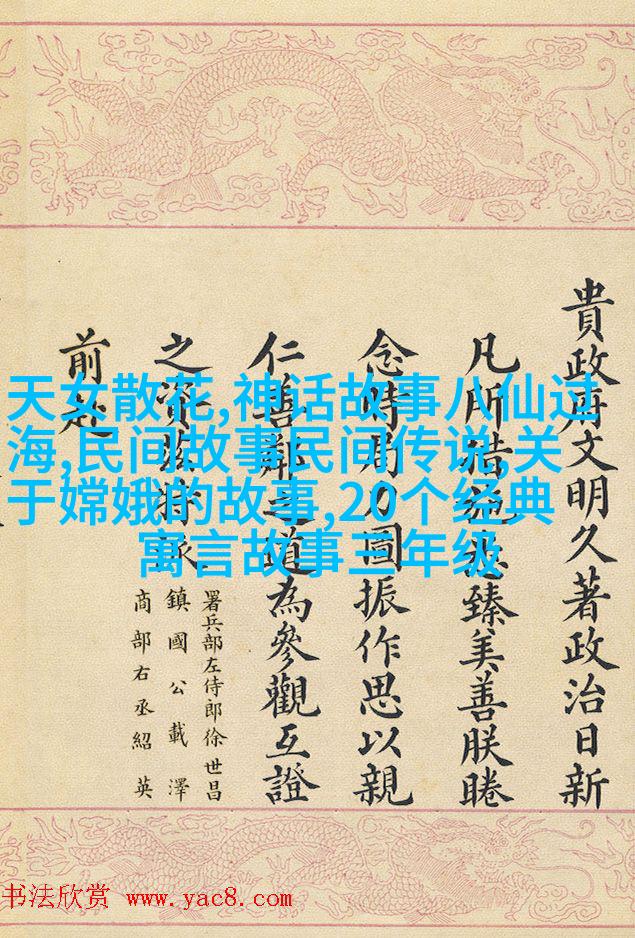 天女散花,神话故事八仙过
海,民间故事民间传说,关
于嫦娥的故事,20个经典
寓言故事三年级
貴政府文明久著政治日新
凡所措施悉臻美善朕睠
念時局力圖振作思以親
仁善鄰之道為參觀互證
之資茲特派
署兵部左侍郎徐世昌
鎮國公載澤
商部右丞紹英
前赴
书法欣赏 www.yac8.com